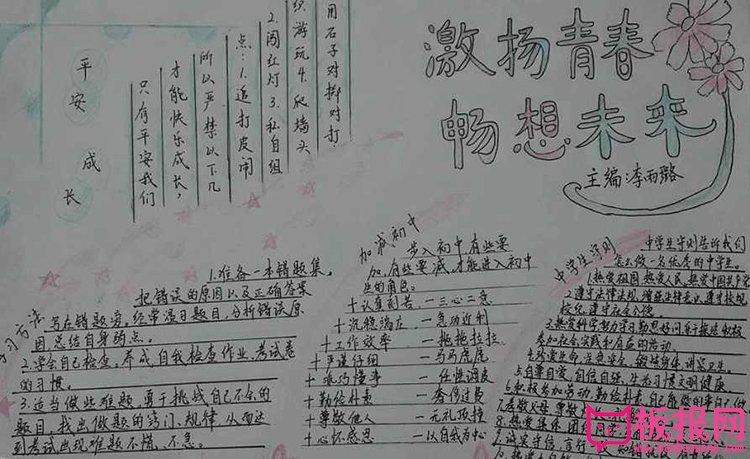 激扬青春
畅想未来
主编:李雨璐
平安成长
只有平安我们
才能快乐成长,
所以严禁以下几
点:1.追打皮闹
2.闯红灯3.私自组
织游玩4.爬墙头
用石子对掷对打
学习方法
1.准备一本错题集,
把错误的原因以及正确答案
写在错题旁,经常温习题目,分析错误原
因,总结自身弱点。
2.学会自己检查,养成自我检查作业、考试卷
的习惯。
3.适当做些难题,勇于挑战自己不会的
题目,找出做题的窍门、规律,从而达
到考试出现难题不慌、不急。
加减初中
步入初中有些要
加,有些要减,才能进入初中
生的角色。
+认真刻苦 一三心二意
+沉稳端庄 一急功近利
+工作效率 一拖拖拉拉
+严谨仔细 一马马虎虎
+乖巧懂事 一任性调皮
+勤俭朴素 一奢侈过费
+尊敬他人 一无礼顶撞
+心怀感恩 一以自我为中心
中学生守则
中学生守则告诉我们
怎么做一名优秀的中学生。
1.热爱祖国,热爱人民,热爱中国共产党
2.遵守法律法规,增强法律意识,遵守校规
校纪,遵守社会公德。
3.热爱科学,努力学习,勤思好问,乐于探究,积极
参加社会实践和有益的活动。
4.珍爱生命,注意安全,锻炼身体,讲究卫生。
5.自尊自爱,自信自强,生活习惯文明健康。
6.积极参加劳动,勤俭朴素,自己能做的事自己做
7.孝敬父母,尊敬
8.热爱集体,团结
9.诚实守信,言行一
板报网